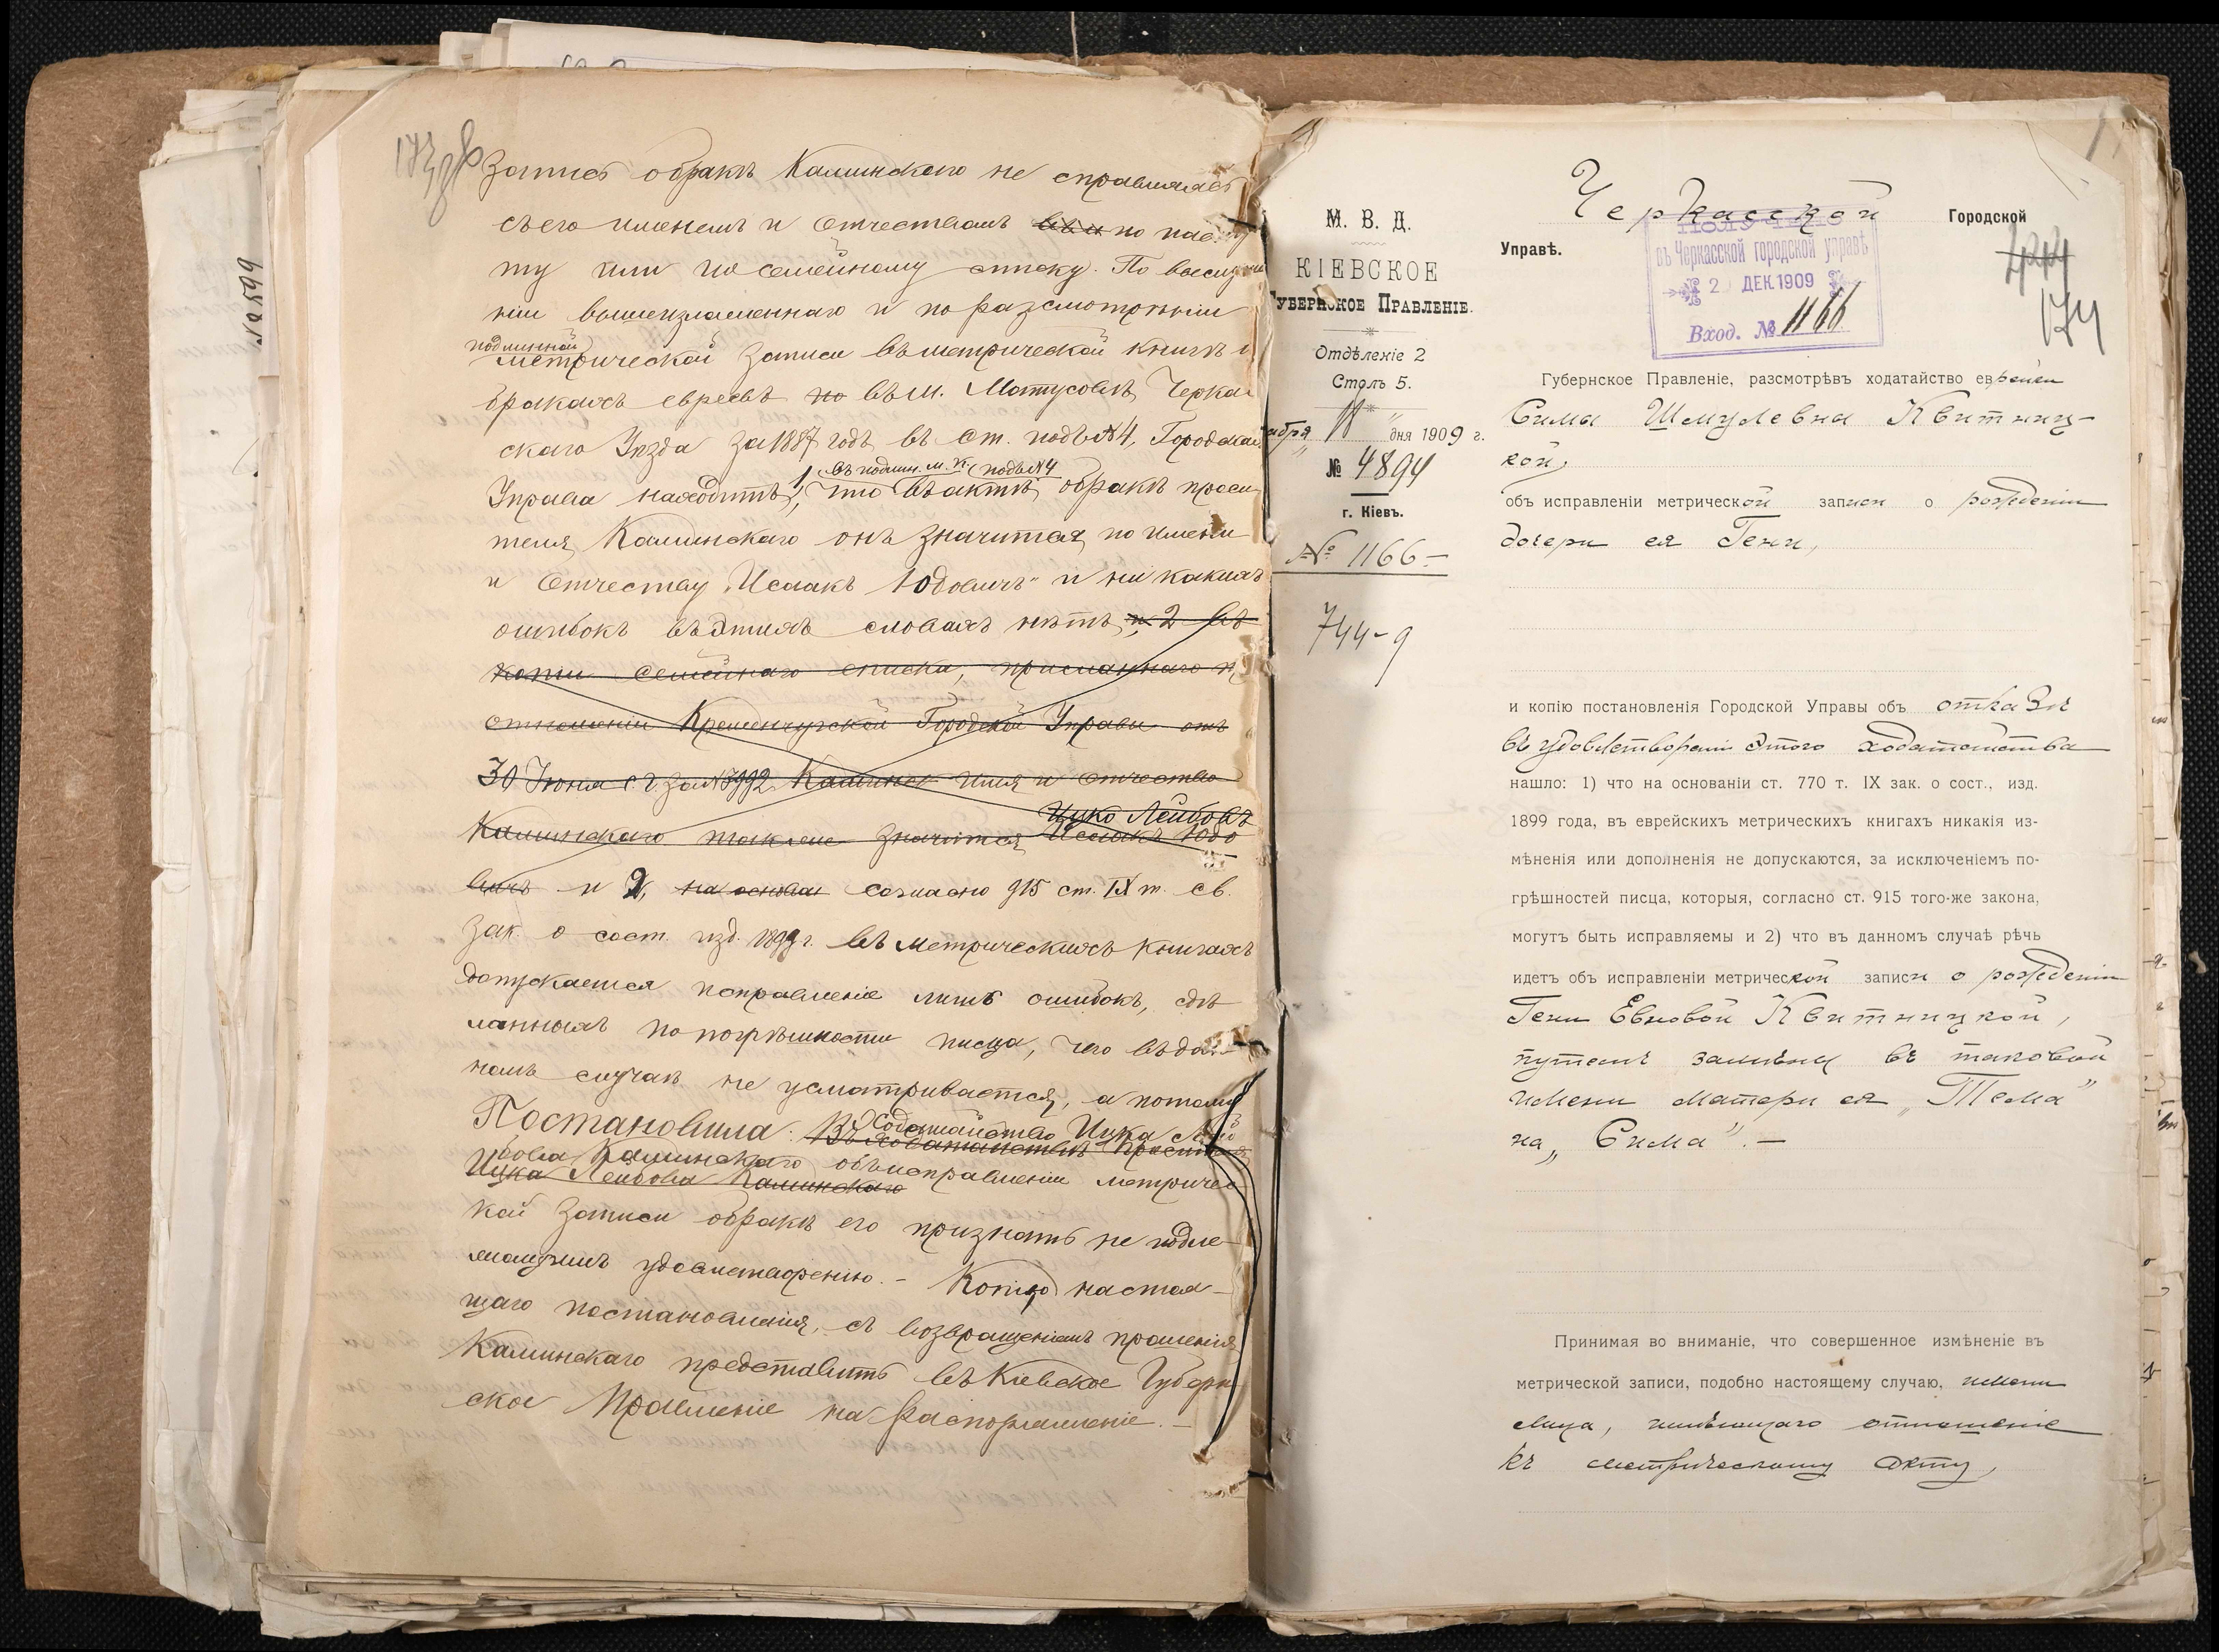 № 599
173 об
Запись о бракѣ Калинскаго не справлялась
съ его именемъ и отчествомъ ~~въ и~~ по пас
ту или по семейному списку. По выслуша
ніи вышеизложеннаго и по разсмотрѣніи
подлинной
метрической записи въ метрической книгѣ о
бракахъ евреевъ ~~по~~ въ м. Матусовѣ, Черкас
скаго Уѣзда за 1887 годъ въ ст. подъ №4, Городская
въ подлин. м. к. подъ №4
Управа находитъ, 1, что въ актѣ о бракѣ проси
теля Калинскаго онъ значится по имени
и отчеству „Исаакъ Юдовичъ" и ни какихъ
ошибокъ въ этихъ словахъ нѣтъ ~~и, 2 въ~~
~~копіи семейнаго списка, присланнаго при~~
~~отношеніи Кременчугской Городской Управы отъ~~
~~30 Іюня с. г. за №3992 Калинск имя и отчество~~
Ицко Лейбовъ
~~Калинскаго также значится Исаакъ Юдо~~
~~вичъ~~ и 2, ~~на основан~~ согласно 915 ст. IX т. св.
зак. о сост. изд. 1899 г. въ метрическихъ книгахъ
допускается исправленіе лишь ошибокъ, сдѣ
ланныхъ по погрѣшности писца, чего въ дан
номъ случаѣ не усматривается, а потому
Постановила: Ходатайство Ицка Лей
~~Въ ходатайствѣ просителя~~
бова Калинскаго объ исправленіи метричес
~~Ицка Лейбова Калинскаго~~
кой записи о бракѣ его признать не подле-
жащимъ удовлетворенію. - Копію настоя-
щаго постановленія, съ возвращеніемъ прошенія
Калинскаго представить въ Кіевское Губерн
ское Правленіе на распоряженіе. -
М. В. Д.
КІЕВСКОЕ
Губернское Правленіе.
Отдѣленіе 2
Столъ 5.
абря 18 дня 1909 г.
№ 4894
г. Кіевъ.
№ 1166 -
744-9
Черкасской Городской
Управѣ.
въ Черкасской городской управѣ
2 ДЕК. 1909
Вход. № 1166
174
Губернское Правленіе, разсмотрѣвъ ходатайство еврейки
Симы Шмулевны Квитниц-
кой,
объ исправленіи метрической записи о рожденіи
дочери ея Гени,
и копію постановленія Городской Управы объ отказѣ
въ удовлетвореніи этого ходатайства
нашло: 1) что на основаніи ст. 770 т. IX зак. о сост., изд.
1899 года, въ еврейскихъ метрическихъ книгахъ никакія из-
мѣненія или дополненія не допускаются, за исключеніемъ по-
грѣшностей писца, которыя, согласно ст. 915 того-же закона,
могутъ быть исправляемы и 2) что въ данномъ случаѣ рѣчь
идетъ объ исправленіи метрической записи о рожденіи
Гени Евновой Квитницкой,
путемъ замѣны въ таковой
имени матери ея „Тема"
на „Сима". -
Принимая во вниманіе, что совершенное измѣненіе въ
метрической записи, подобно настоящему случаю, имени
лица, имѣющаго отношеніе
къ метрическому акту,